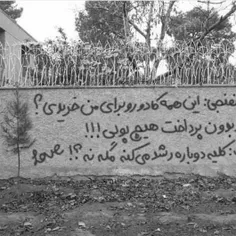 گفتی: این همه کادو رو برای من خریدی؟
بدون پرداخت هیچ پولی!!!
کلیه دوباره رشد می کنه مگه نه؟!